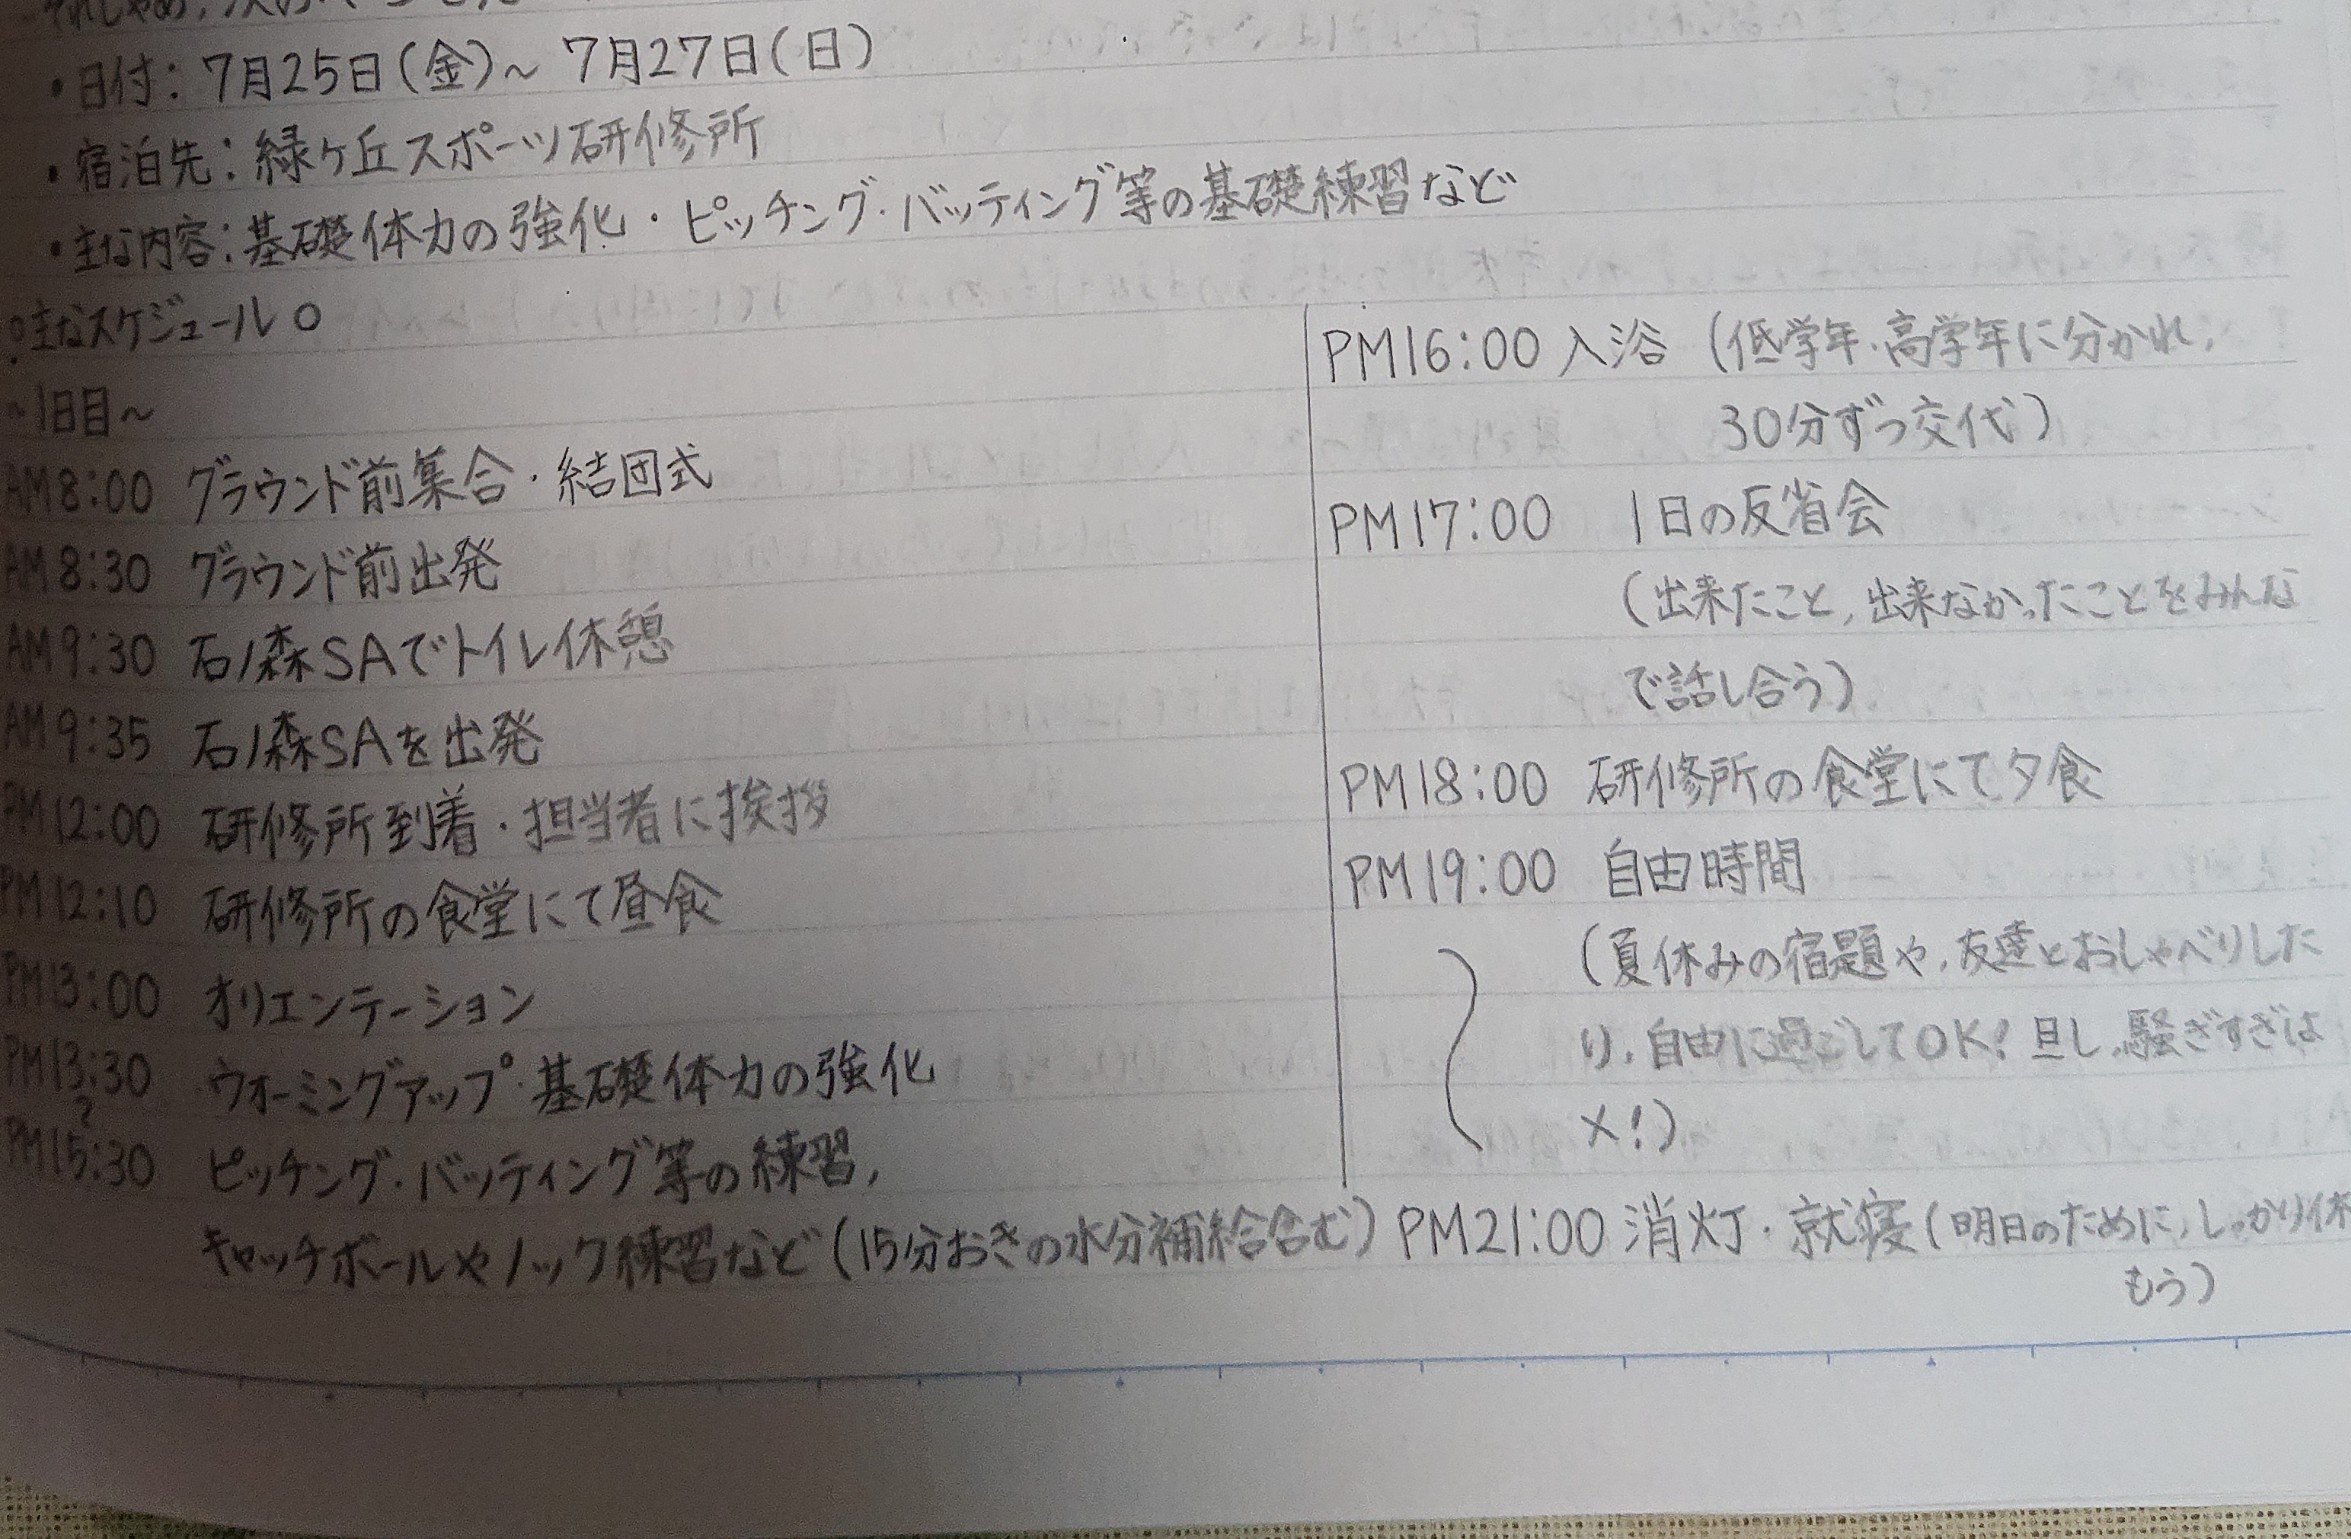 ・日付：7月25日(金)～ 7月27日(日)
・宿泊先：緑ヶ丘スポーツ研修所
・主な内容：基礎体力の強化・ピッチング・バッティング等の基礎練習など
○主なスケジュール○
～1日目～
AM8:00 グラウンド前集合・結団式
AM8:30 グラウンド前出発
AM9:30 石ノ森SAでトイレ休憩
AM9:35 石ノ森SAを出発
PM12:00 研修所到着・担当者に挨拶
PM12:10 研修所の食堂にて昼食
PM13:00 オリエンテーション
PM13:30 ウォーミングアップ・基礎体力の強化
～
PM15:30 ピッチング・バッティング等の練習,
キャッチボールやノック練習など(15分おきの水分補給含む)
PM16:00 入浴 (低学年・高学年に分かれ,
30分ずつ交代)
PM17:00 1日の反省会
(出来たこと,出来なかったことをみんな
で話し合う)
PM18:00 研修所の食堂にて夕食
PM19:00 自由時間
(夏休みの宿題や,友達とおしゃべりした
り,自由に過ごしてOK! 旦し,騒ぎすぎは
×!)
PM21:00 消灯・就寝(明日のために,しっかり休
もう)